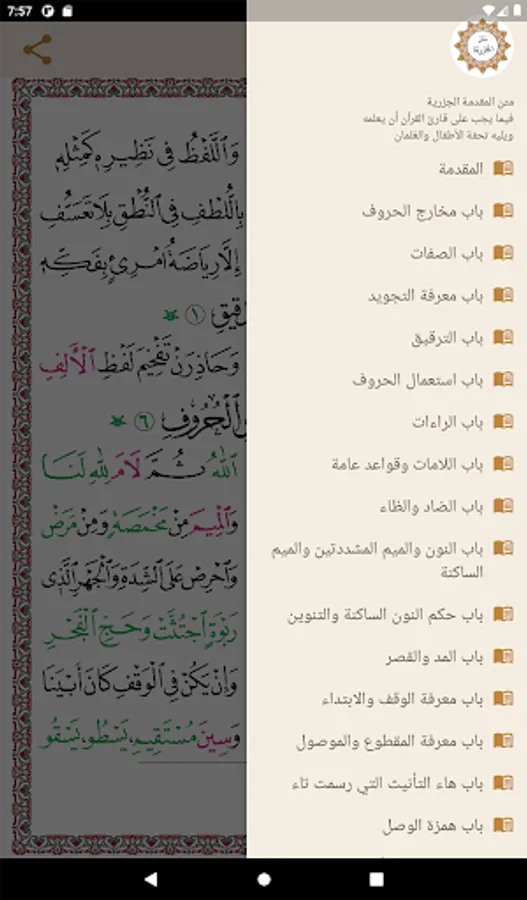 7:57
متن الجزرية
متن المقدمة الجزرية
فيما يجب على قارئ القرآن أن يعلمه
ويليه تحفة الأطفال والغلمان
المقدمة
باب مخارج الحروف
باب الصفات
باب معرفة التجويد
باب الترقيق
باب استعمال الحروف
باب الراءات
باب اللامات وقواعد عامة
باب الضاد والظاء
باب النون والميم المشددتين والميم
الساكنة
باب حكم النون الساكنة والتنوين
باب المد والقصر
باب معرفة الوقف والابتداء
باب معرفة المقطوع والموصول
باب هاء التأنيث التي رسمت تاء
باب همزة الوصل
وَاللَّفْظُ فِي نَظِيرِهِ كَمِثْلِهِ
بِاللُّطْفِ فِي النُّطْقِ بِلَا تَعَسُّفِ
إِلَّا رِيَاضَةُ امْرِئٍ بِفَكِّهِ
١
وَحَاذِرَنْ تَفْخِيمَ لَفْظِ الْأَلِفِ
الْحُرُوفِ ٦
اللَّهُ ثُمَّ لَامَ لِلَّهِ لَنَا
وَالْمِيمَ مِنْ مَخْمَصَةٍ وَمِنْ مَرَضْ
وَاحْرِصْ عَلَى الشِّدَّةِ وَالْجَهْرِ الَّذِي
رَبْوَةٍ اجْتُثَّتْ وَحَجِّ الْفَجْرِ
وَإِنْ يَكُنْ فِي الْوَقْفِ كَانَ أَبْيَنَا
وَسِينَ مُسْتَقِيمِ، يَسْطُو، يَسْقُو